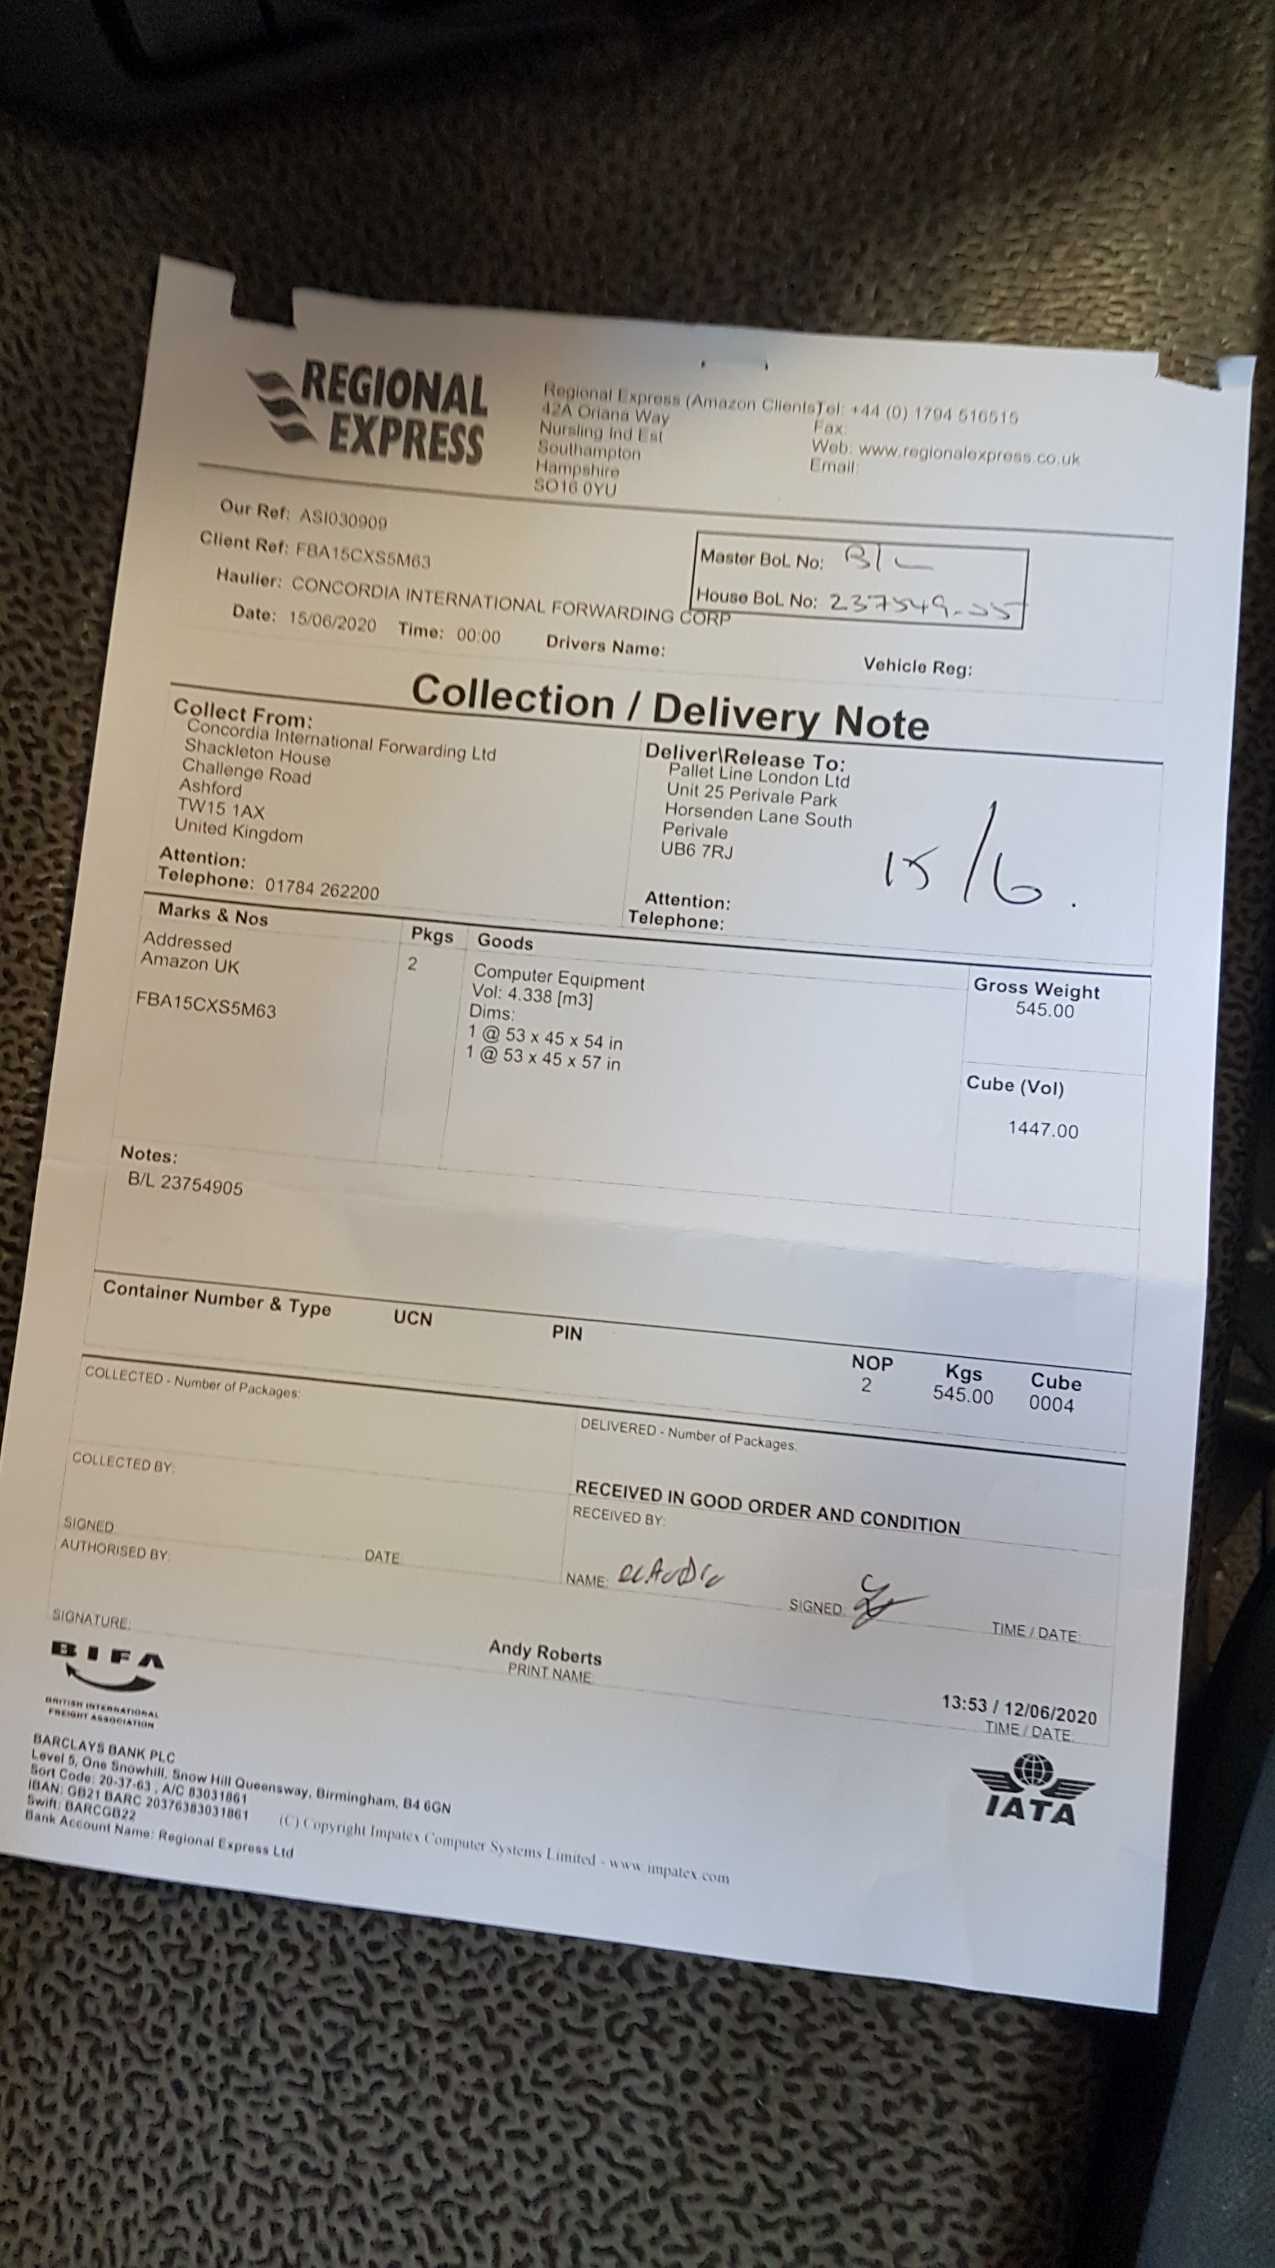 REGIONAL
EXPRESS
Regional Express (Amazon Clients)
42A Oriana Way
Nursling Ind Est
Southampton
Hampshire
SO16 0YU
Tel: +44 (0) 1794 516515
Fax:
Web: www.regionalexpress.co.uk
Email:
Our Ref: ASI030909
Client Ref: FBA15CXS5M63
Haulier: CONCORDIA INTERNATIONAL FORWARDING CORP
Date: 15/06/2020 Time: 00:00 Drivers Name: Vehicle Reg:
Master BoL No: B/L
House BoL No:
Collection / Delivery Note
Collect From:
Concordia International Forwarding Ltd
Shackleton House
Challenge Road
Ashford
TW15 1AX
United Kingdom
Attention:
Telephone: 01784 262200
Deliver\Release To:
Pallet Line London Ltd
Unit 25 Perivale Park
Horsenden Lane South
Perivale
UB6 7RJ
15/6.
Attention:
Telephone:
Marks & Nos Pkgs Goods
Addressed
Amazon UK
FBA15CXS5M63
2
Computer Equipment
Vol: 4.338 [m3]
Dims:
1 @ 53 x 45 x 54 in
1 @ 53 x 45 x 57 in
Gross Weight
545.00
Cube (Vol)
1447.00
Notes:
B/L 23754905
Container Number & Type UCN PIN NOP Kgs Cube
2 545.00 0004
COLLECTED - Number of Packages:
COLLECTED BY:
SIGNED
AUTHORISED BY: DATE
SIGNATURE:
DELIVERED - Number of Packages:
RECEIVED IN GOOD ORDER AND CONDITION
RECEIVED BY:
NAME: SIGNED: TIME / DATE:
Andy Roberts
PRINT NAME
13:53 / 12/06/2020
TIME / DATE:
BIFA
BRITISH INTERNATIONAL
FREIGHT ASSOCIATION
BARCLAYS BANK PLC
Level 5, One Snowhill, Snow Hill Queensway, Birmingham, B4 6GN
Sort Code: 20-37-63 , A/C 83031861
IBAN: GB21 BARC 20376383031861
Swift: BARCGB22
Bank Account Name: Regional Express Ltd
(C) Copyright Impatex Computer Systems Limited - www.impatex.com
IATA